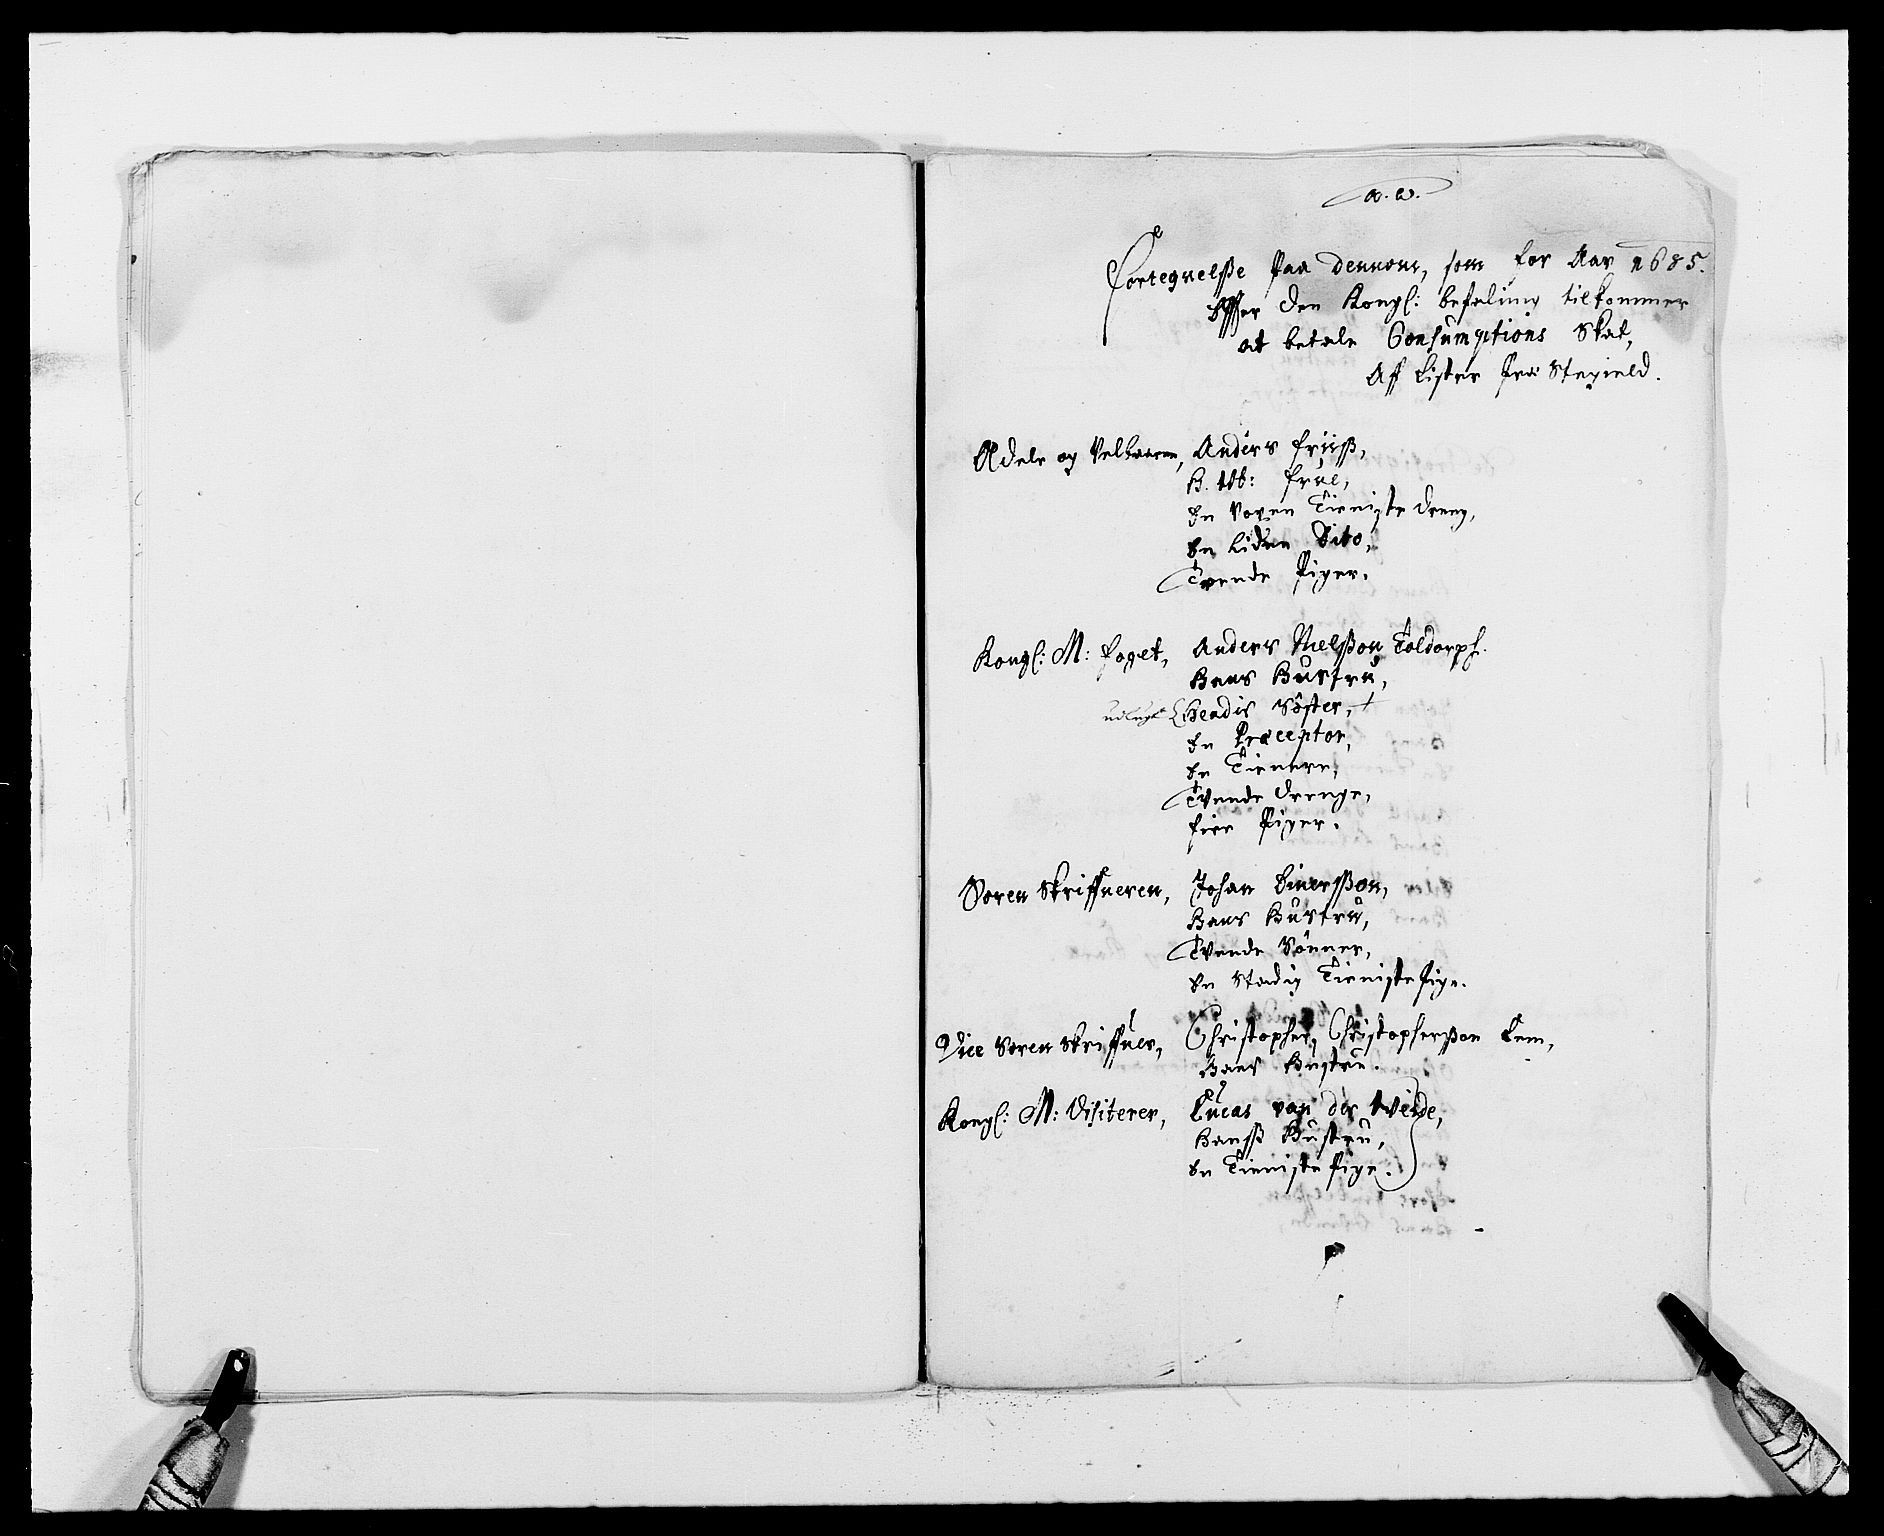 Fortegnelsse Paa dennom, som for Aar 1685.
Effter den Kongl: befaling tilkommer
at betale Consumptions Skat,
Aff Lister
Adele og Velbaarne, Anders friiss,
H. Wb: frue,
En voxen Tieniste dreng,
En liden Dito,
Tvende Piger.
Kongl: M: foget, Anders Nielsson Toldorph.
Hans Hustru,
Hendis Söster,
En Præceptor,
En Tienere,
Tvende drenge,
fire Piger.
Soren Skriffueren, Johan Einersson,
Hans Hustru,
Tvende Sönner,
En Stadig Tieniste Pige.
Vice Soren Skriffuer, Christopher Christophersson Lem,
Hans Hustru.
Kongl: M: Visiterer, Lucas van der Weide,
Hanss Hustru,
En Tieniste Pige.